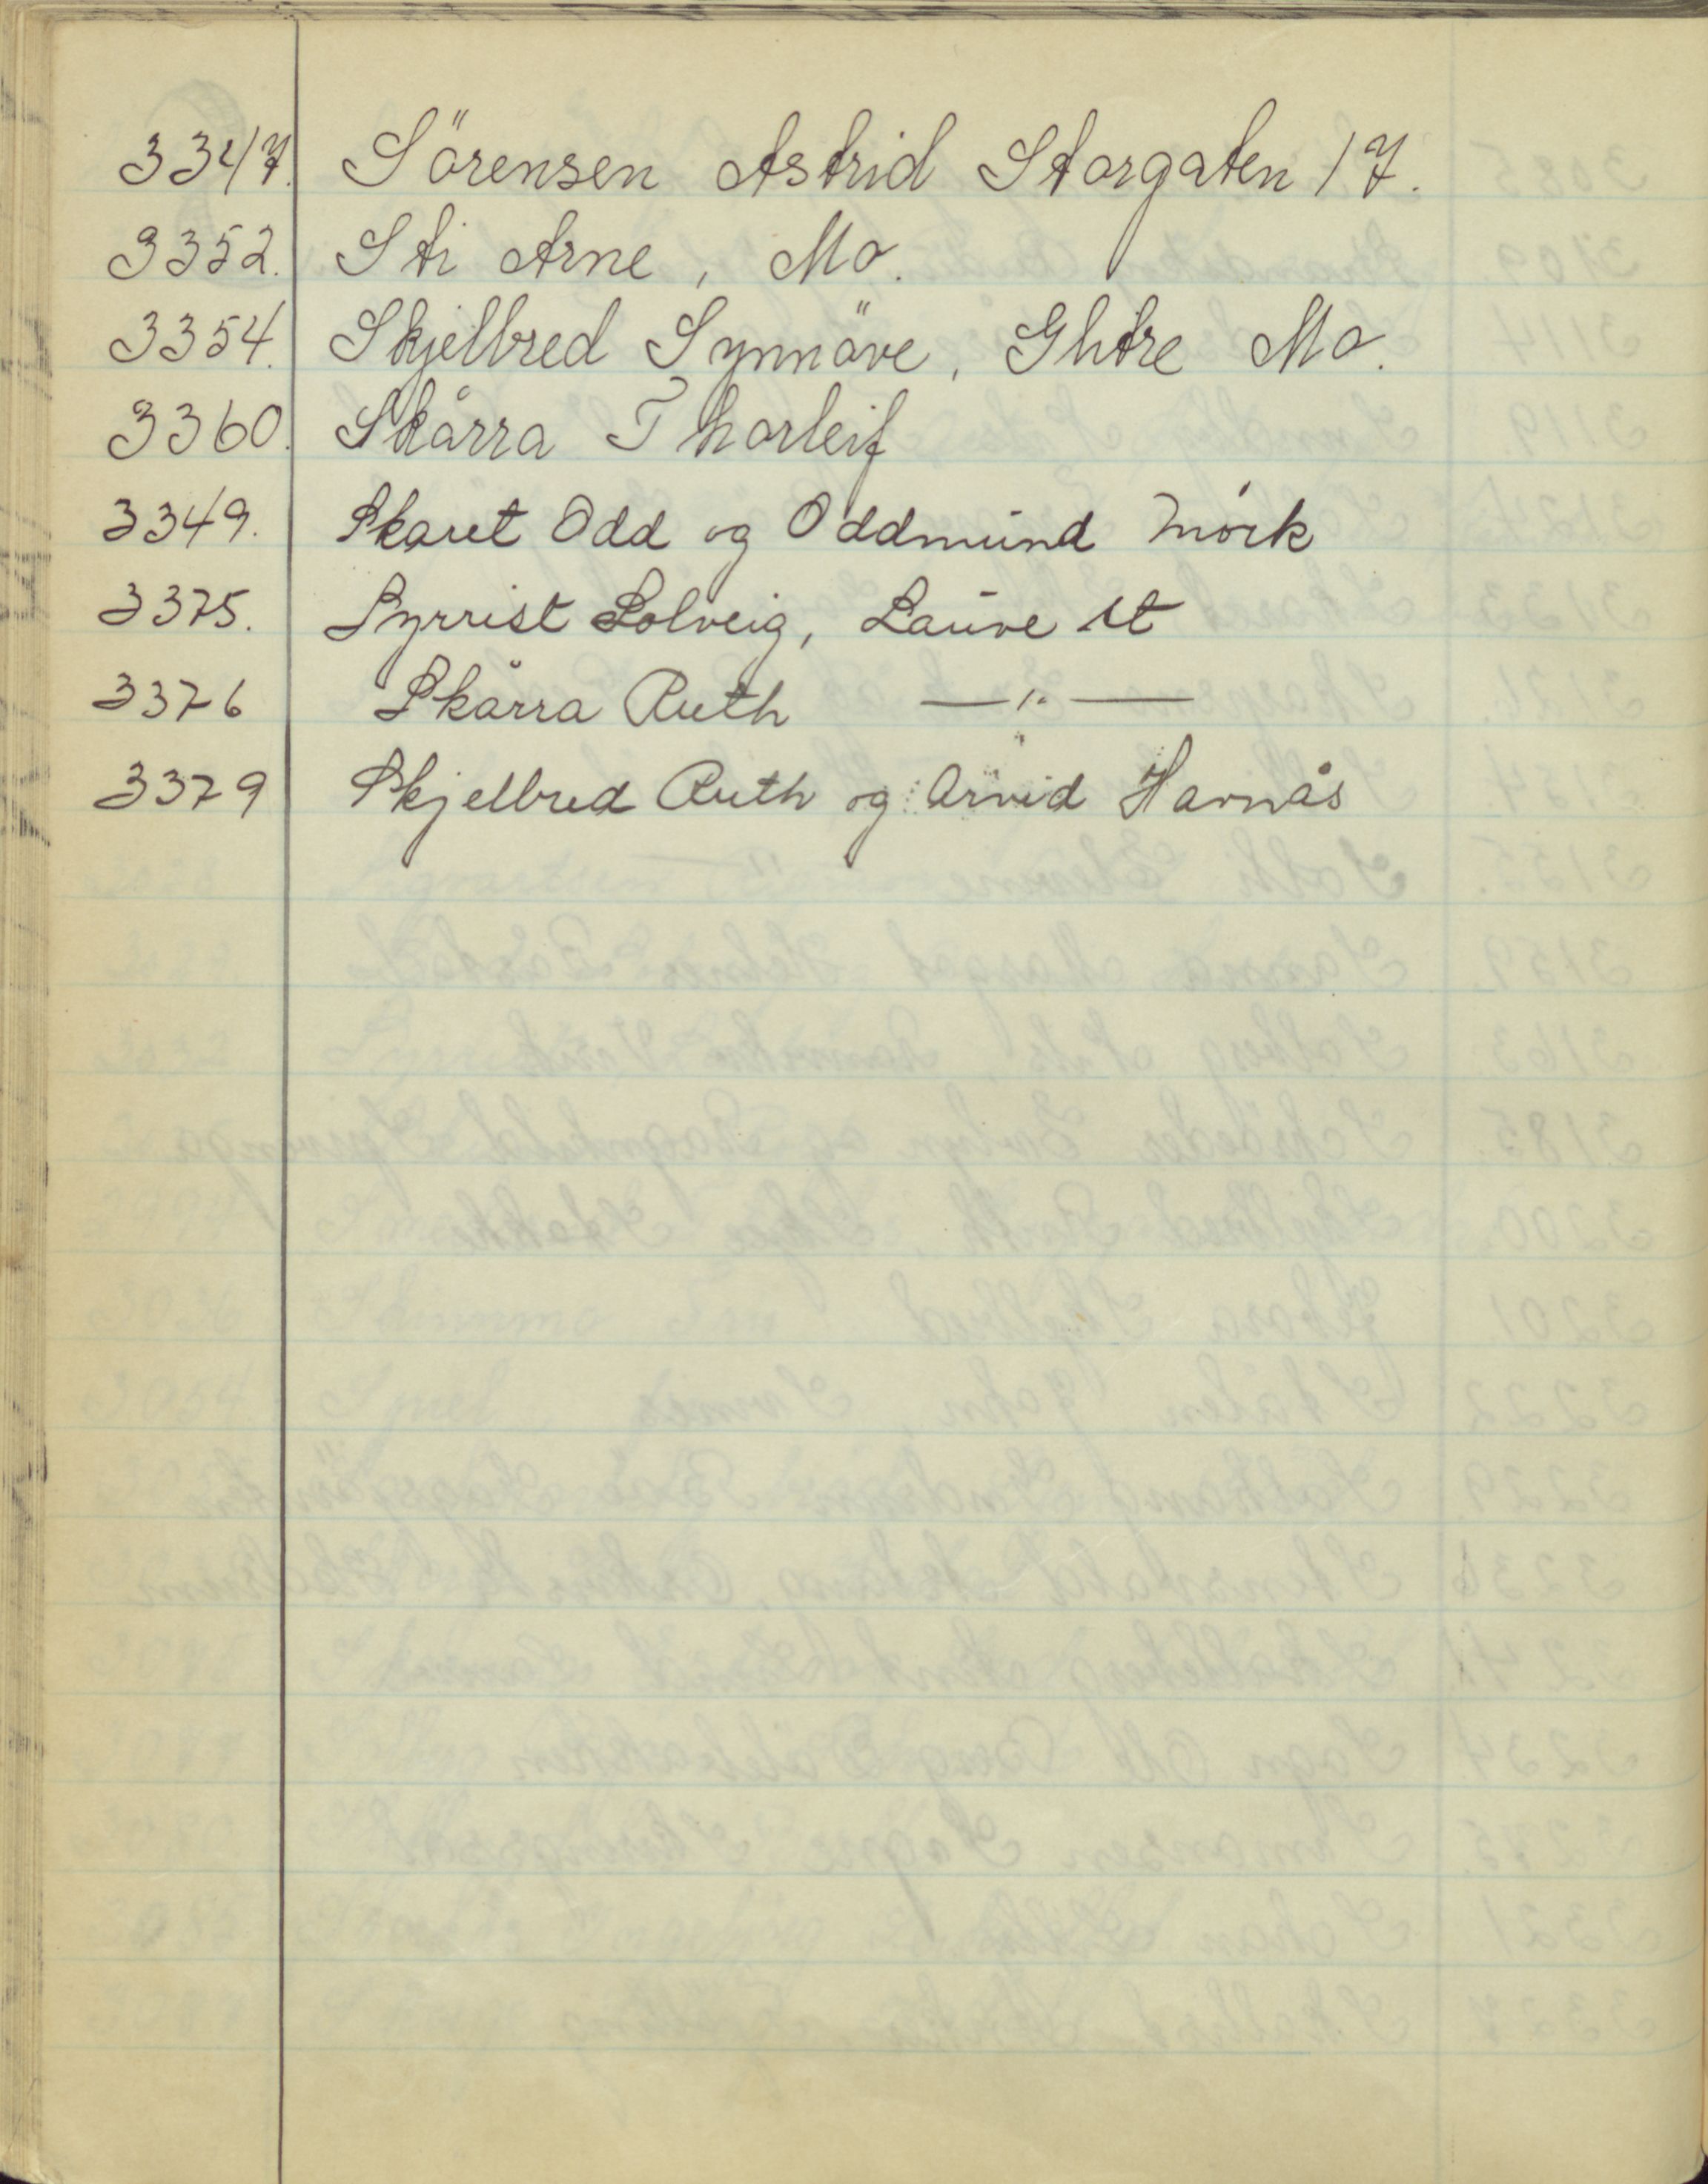 3347. Sörensen Astrid Storgaten 17.
3352. Sti Arne, Mo.
3354. Skjelbred Synnöve, Ghtre Mo.
3360. Skårra Thorleif
3349. Skaret Odd og Oddmund Mörk
3375. Syrrist Solveig, Lauve st
3376 Skårra Ruth —"—
3379 Skjelbred Ruth og Arvid Havnås